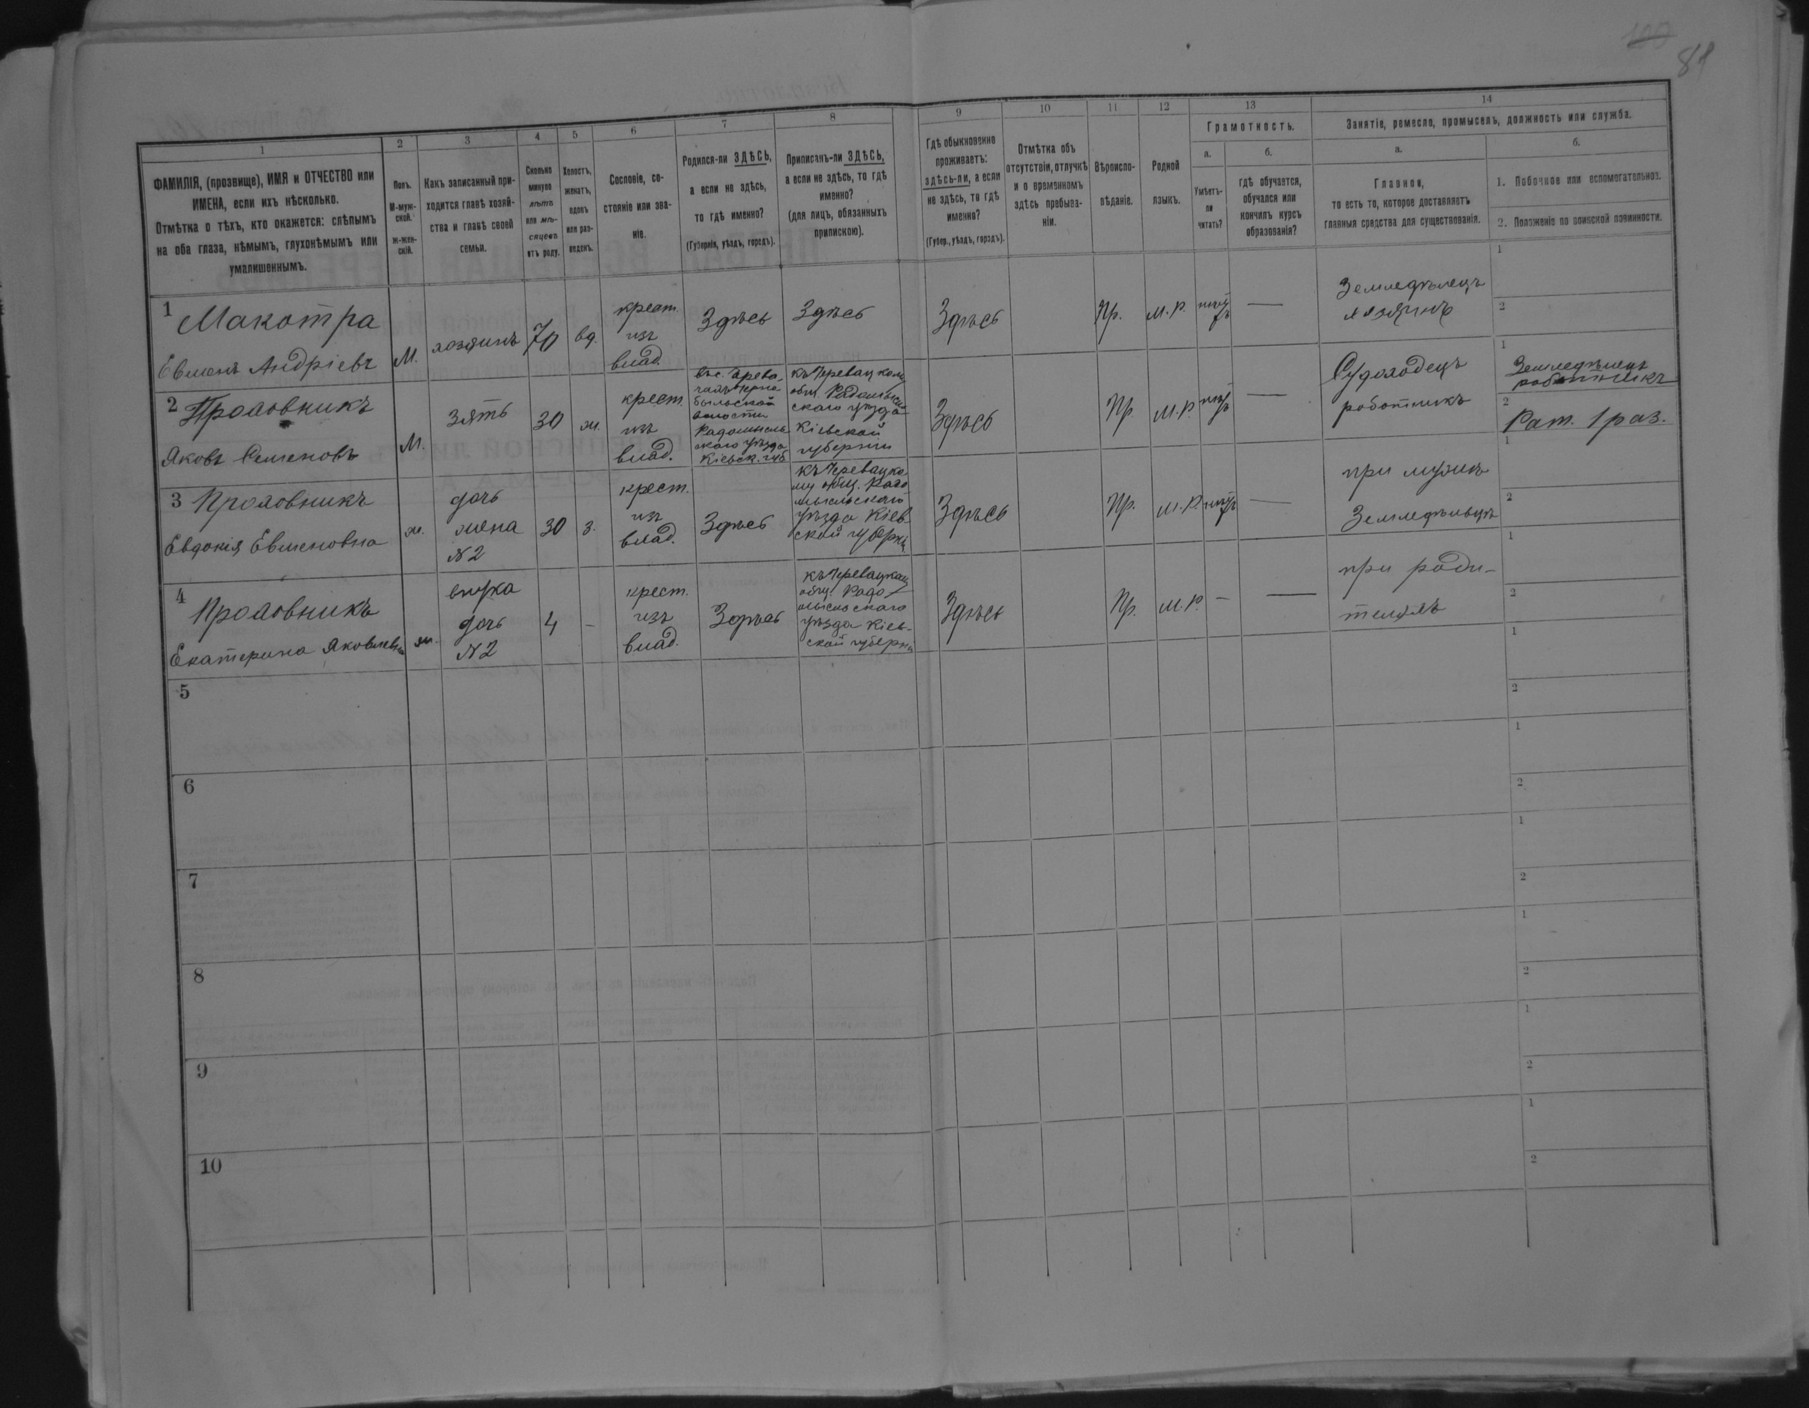 100
81
1
2
3
4
5
6
7
8
9
10
11
12
13
14
ФАМИЛІЯ, (прозвище), ИМЯ и ОТЧЕСТВО или
ИМЕНА, если ихъ нѣсколько.
Отмѣтка о тѣхъ, кто окажется: слѣпымъ
на оба глаза, нѣмымъ, глухонѣмымъ или
умалишеннымъ.
Полъ.
М-муж-
ской.
ж-жен-
скій.
Какъ записанный при-
ходится главѣ хозяй-
ства и главѣ своей
семьи.
Сколько
минуло
лѣтъ
или мѣ-
сяцевъ
отъ роду.
Холостъ,
женатъ,
вдовъ
или раз-
веденъ.
Сословіе, со-
стояніе или зва-
ніе.
Родился-ли ЗДѢСЬ,
а если не здѣсь,
то гдѣ именно?
(Губернія, уѣздъ, городъ).
Приписанъ-ли ЗДѢСЬ,
а если не здѣсь, то гдѣ
именно?
(для лицъ, обязанныхъ
припискою).
Гдѣ обыкновенно
проживаетъ:
здѣсь-ли, а если
не здѣсь, то гдѣ
именно?
(Губер., уѣздъ, городъ).
Отмѣтка объ
отсутствіи, отлучкѣ
и о временномъ
здѣсь пребыва-
ніи.
Вѣроиспо-
вѣданіе.
Родной
языкъ.
Грамотность.
а.
Умѣетъ-
ли
читать?
б.
гдѣ обучается,
обучался или
кончилъ курсъ
образованія?
Занятіе, ремесло, промыселъ, должность или служба.
а.
Главное,
то есть то, которое доставляетъ
главныя средства для существованія.
б.
1. Побочное или вспомогательное.
2. Положеніе по воинской повинности.
1
Макотра
Андріевъ
М.
хозяинъ
70
вд.
крест.
изъ
влад.
Здѣсь
Здѣсь
Здѣсь
Пр.
М.Р.
—
Земледѣлецъ
хозяинъ
1
2
2
Проловникъ
Яковъ Семеновъ
М.
зять
30
ж.
крест.
изъ
влад.
быльской
волости
Радомысль
скаго уѣзда
Кіевск. губ
къ Черевацком
общ. Радомысль
скаго уѣзда
Кіевской
губерніи
Здѣсь
Пр
М.Р
—
Судоходецъ
роботникъ
1
Земледѣлецъ
роботникъ
2
Рат. 1 раз.
3
Проловникъ
Евдокія
ж.
дочь
жена
№2
30
з.
крест.
изъ
влад.
Здѣсь
къ Черевацко-
му общ. Радо
мысльскаго
уѣзда Кіев-
ской губерн
Здѣсь
Пр.
М.Р
—
при мужѣ
1
2
4
Проловникъ
Екатерина Яковлевна
ж.
внука
дочь
№2
4
-
крест.
изъ
влад.
Здѣсь
къ Черевацком
общ. Радо
мысльского
уѣзда Кіев-
ской губерн
Здѣсь
Пр.
М.Р.
—
—
при роди-
теляхъ
1
2
5
1
2
6
1
2
7
1
2
8
1
2
9
1
2
10
1
2